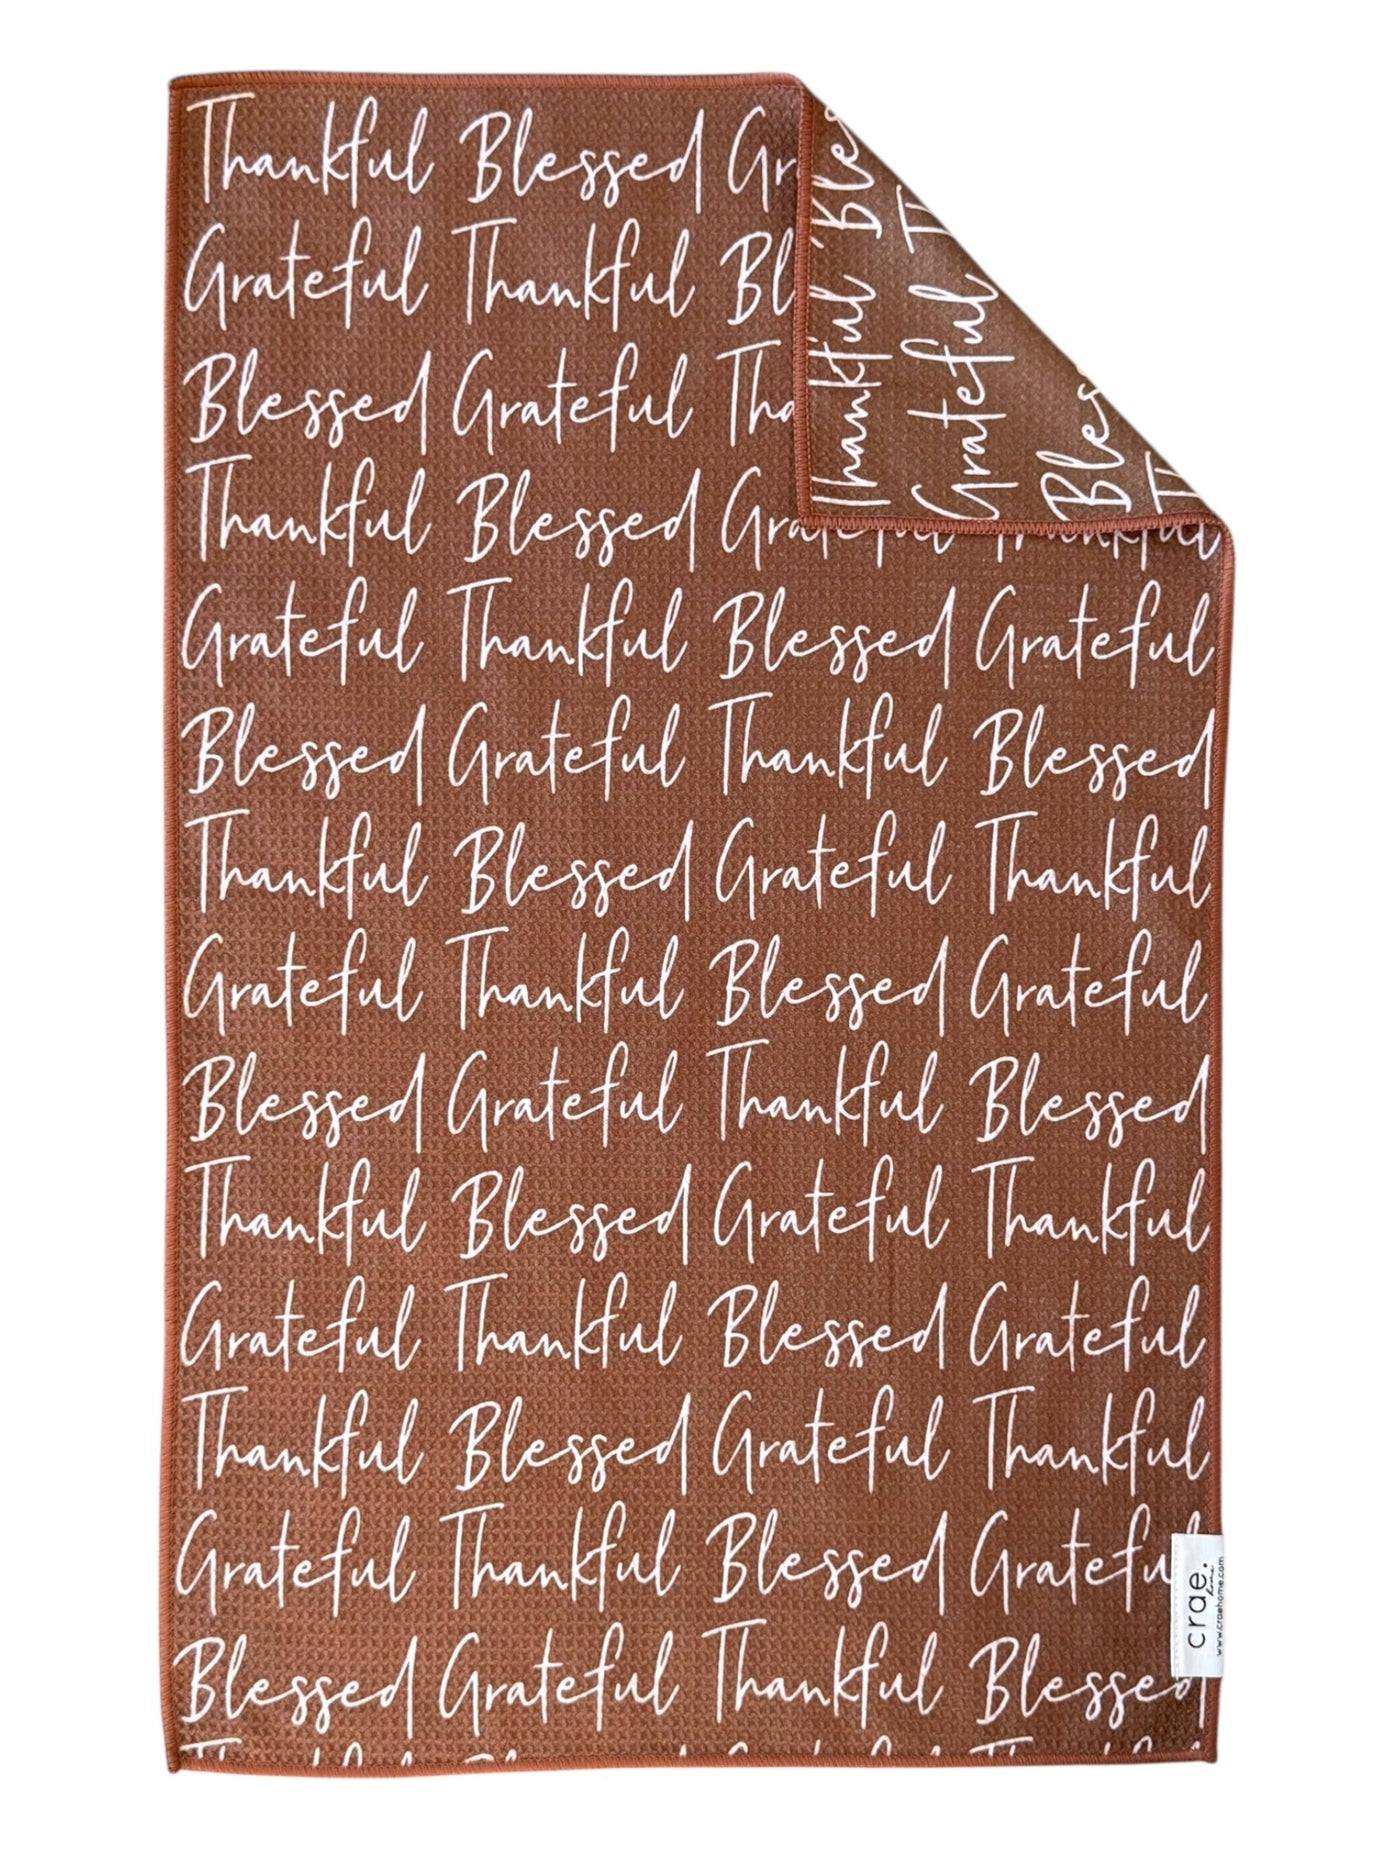 Thankful Blessed Gr
Grateful Thankful Bl
Blessed Grateful Tha
Thankful Blessed Grateful Thankful
Grateful Thankful Blessed Grateful
Blessed Grateful Thankful Blessed
Thankful Blessed Grateful Thankful
Grateful Thankful Blessed Grateful
Blessed Grateful Thankful Blessed
Thankful Blessed Grateful Thankful
Grateful Thankful Blessed Grateful
Thankful Blessed Grateful Thankful
Grateful Thankful Blessed Gratefu
Blessed Grateful Thankful Blessed
Thankful Ble
Grateful T
Bles
crae.
home
www.craehome.com